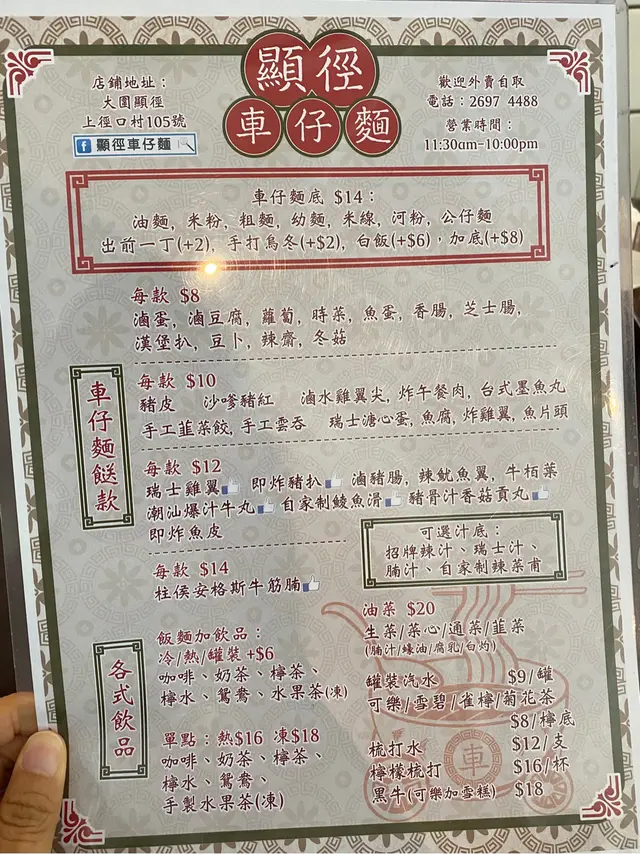 店鋪地址：
大圍顯徑
上徑口村105號
f 顯徑車仔麵
顯徑
車仔麵
歡迎外賣自取
電話：2697 4488
營業時間：
11:30am-10:00pm
車仔麵底 $14：
油麵, 米粉, 粗麵, 幼麵, 米線, 河粉, 公仔麵
出前一丁(+2), 手打烏冬(+$2), 白飯(+$6), 加底(+$8)
車仔麵餸款
每款 $8
滷蛋, 滷豆腐, 蘿蔔, 時菜, 魚蛋, 香腸, 芝士腸,
漢堡扒, 豆卜, 辣齋, 冬菇
每款 $10
豬皮 沙嗲豬紅 滷水雞翼尖, 炸午餐肉, 台式墨魚丸
手工韮菜餃, 手工雲吞 瑞士溏心蛋, 魚腐, 炸雞翼, 魚片頭
每款 $12
瑞士雞翼 即炸豬扒 滷豬腸, 辣魷魚翼, 牛栢葉
潮汕爆汁牛丸 自家制鯪魚滑 豬骨汁香菇貢丸
即炸魚皮
每款 $14
柱侯安格斯牛筋腩
可選汁底：
招牌辣汁、瑞士汁、
腩汁、自家制辣菜甫
各式飲品
飯麵加飲品：
冷/熱/罐裝 +$6
咖啡、奶茶、檸茶、
檸水、鴛鴦、水果茶(凍)
單點：熱$16 凍$18
咖啡、奶茶、檸茶、
檸水、鴛鴦、
手製水果茶(凍)
油菜 $20
生菜/菜心/通菜/韮菜
(腩汁/蠔油/腐乳/白灼)
罐裝汽水 $9/罐
可樂/雪碧/雀檸/菊花茶
$8/檸底
梳打水 $12/支
檸檬梳打 $16/杯
黑牛(可樂加雪糕) $18
車